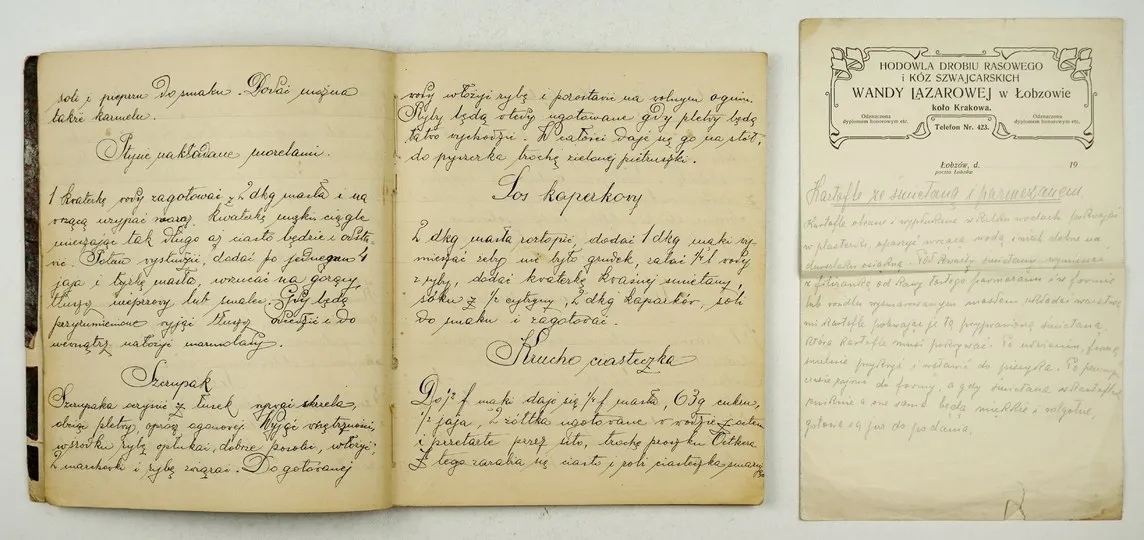 soli i pieprzu do smaku. Dodać można
także karmelu.
Ptysie nakładane morelami.
1 kwaterkę wody zagotować z 2 dkg masła i na
wrzącą wsypać zaraz kwaterkę mąki ciągle
mieszając tak długo aż ciasto będzie odsta-
wać. Potem wystudzić, dodać po jednem 4
jaja i łyżkę masła, wrzucać na gorący
tłuszcz wieprzowy lub smalec. Gdy będą
przyrumienione wyjąć tłuszcz osiedzie i do
wewnątrz nałożyć marmolady.
Szczupak
Szczupaka oczyścić z łusek wyrwać skrzela,
obciąć pletwy, oprócz ogonowej. Wyjąć wnętrzności,
w środku rybę opłukać, dobrze posolić, włożyć
2 marchewki i rybę związać. Do gotowanej
wody włożyć rybę i pozostawić na wolnym ogniu.
Ryby będą wtedy ugotowane gdy pletwy będą
łatwo wychodzić. W całości daje się go na stół,
do pyszczka trochę zielonej pietruszki.
Sos kaperkowy
2 dkg masła roztopić, dodać 1 dkg mąki wy-
mieszać żeby nie było grudek, zalać ¼ l wody
z ryby, dodać kwaterkę kwaśnej śmietany,
soku z ½ cytryny, 2 dkg kaparków, soli
do smaku i zagotować.
Kruche ciasteczka
Do ½ f mąki daje się ½ f masła, 63 g cukru,
½ jaja, 2 żółtka ugotowane w wodzie z octem
i przetarte przez sito, trochę proszku Oetkera.
Z tego zarabia się ciasto i robi ciasteczka smaruje
HODOWLA DROBIU RASOWEGO
i KÓZ SZWAJCARSKICH
WANDY ŁAZAROWEJ w Łobzowie
koło Krakowa.
Odznaczona
dyplomem honorowym etc.
Telefon Nr. 423.
Odznaczona
dyplomem honorowym etc.
Łobzów, d. 19
poczta Łobzów
Kartofle ze śmietaną i parmezanem
Kartofle obrane i wypłukane w kilku wodach pokrajać
w plasterki, sparzyć wrzącą wodą i niech dobrze na
durszlaku osiąkną. Pół kwarty śmietany wymieszać
z filiżanką od kawy tartego parmezanu i w formie
lub rondlu wysmarowanym masłem układać warstwa-
mi kartofle polewając je tą przyprawioną śmietaną,
która kartofle musi pokrywać. Po ubraniu, formę
szczelnie przykryć i wstawić do pieczyka. Po parnym
czasie zajrzeć do formy, a gdy śmietana w kartofle
wsiąknie a one same będą miękkie i wilgotne,
gotowe są już do podania.